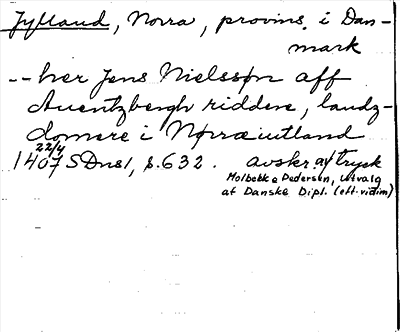 Jylland, Norra, provins i Dan-
mark
-- her Jens Nielssøn aff
Auentzbergh riddere, landz-
domere i Nørræiutland
1407 22/4 SDns1, s. 632. avskr. av tryck
Molbech o Pedersen, Utvalg
af Danske Dipl. (eft. vidim)